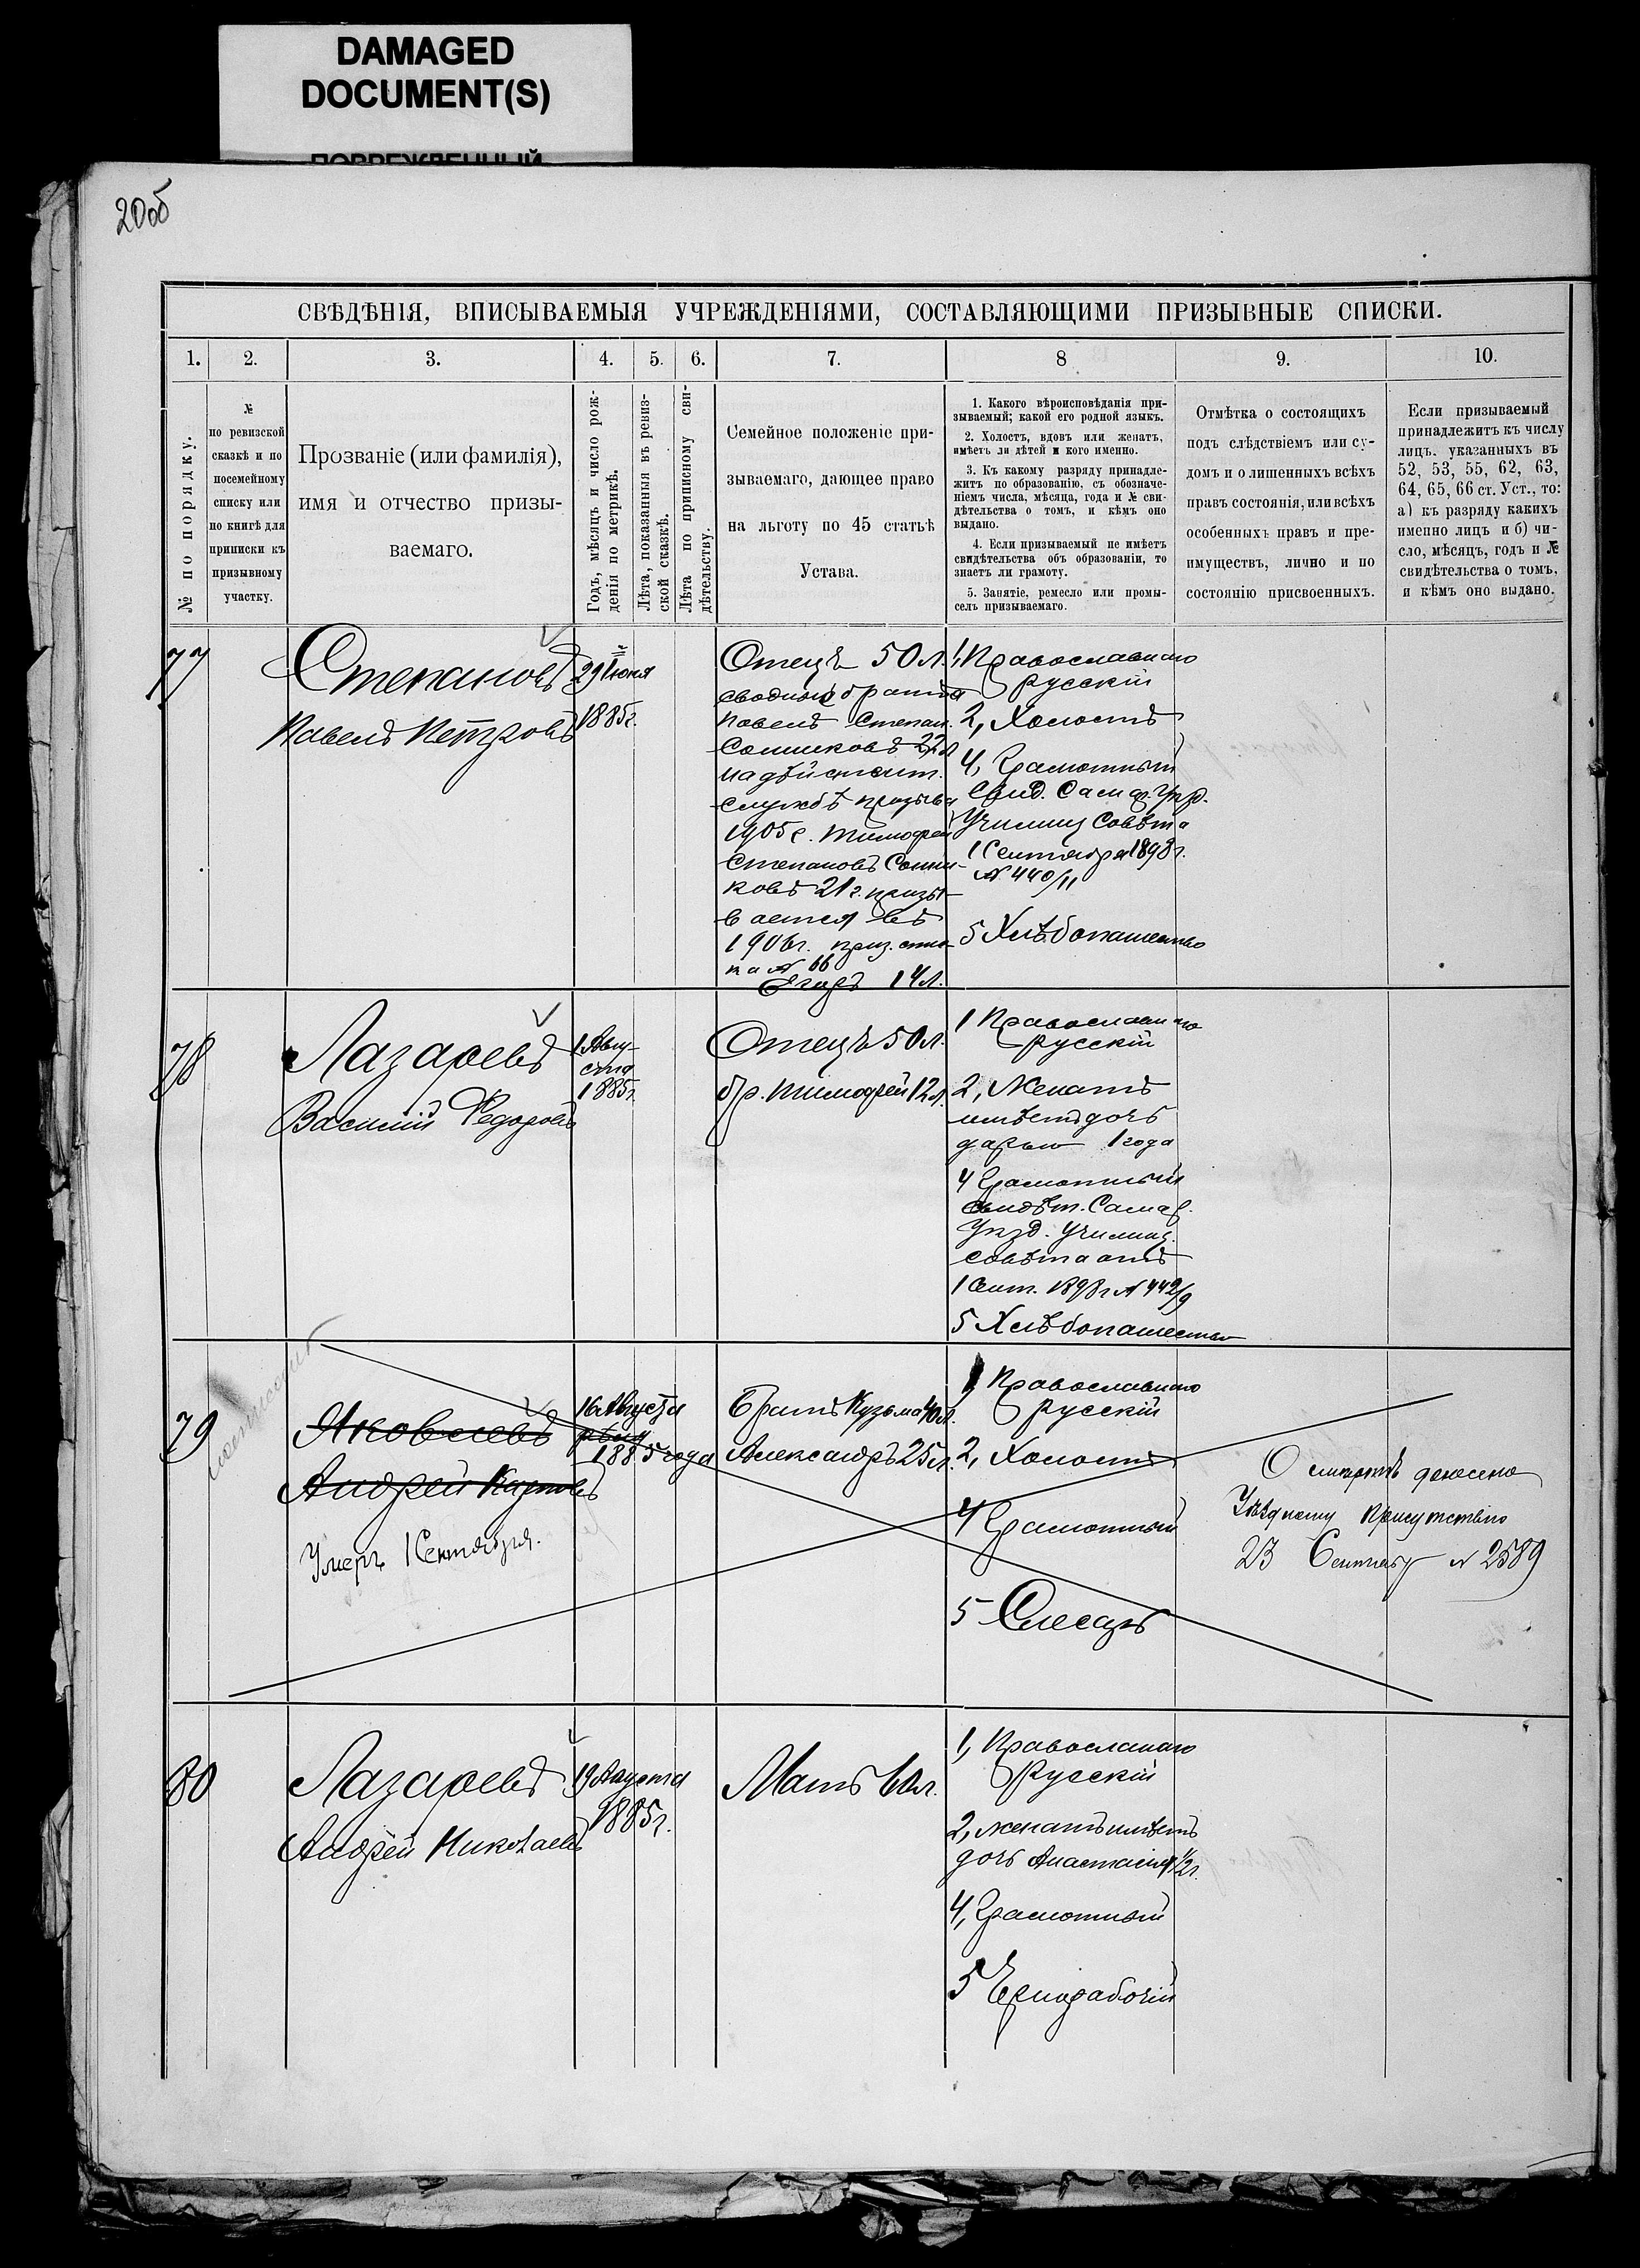 DAMAGED
DOCUMENT(S)
ПОВРЕЖДЕННЫЙ
20об
СВѢДѢНІЯ, ВПИСЫВАЕМЫЯ УЧРЕЖДЕНІЯМИ, СОСТАВЛЯЮЩИМИ ПРИЗЫВНЫЕ СПИСКИ.
1. 2. 3. 4. 5. 6. 7. 8 9. 10.
№ по порядку.
№
по ревизской
сказкѣ и по
посемейному
списку или
по книгѣ для
приписки къ
призывному
участку.
Прозваніе (или фамилія),
имя и отчество призы-
ваемаго.
Годъ, мѣсяцъ и число рож-
денія по метрикѣ.
Лѣта, показанныя въ ревиз-
ской сказкѣ.
Лѣта по приписному сви-
дѣтельству.
Семейное положеніе при-
зываемаго, дающее право
на льготу по 45 статьѣ
Устава.
1. Какого вѣроисповѣданія при-
зываемый; какой его родной языкъ.
2. Холостъ, вдовъ или женатъ,
имѣетъ ли дѣтей и кого именно.
3. Къ какому разряду принадле-
житъ по образованію, съ обозначе-
ніемъ числа, мѣсяца, года и № сви-
дѣтельства о томъ, и кѣмъ оно
выдано.
4. Если призываемый не имѣетъ
свидѣтельства объ образованіи, то
знаетъ ли грамоту.
5. Занятіе, ремесло или промы-
селъ призываемаго.
Отмѣтка о состоящихъ
подъ слѣдствіемъ или су-
домъ и о лишенныхъ всѣхъ
правъ состоянія, или всѣхъ
особенныхъ правъ и пре-
имуществъ, лично и по
состоянію присвоенныхъ.
Если призываемый
принадлежитъ къ числу
лицъ, указанныхъ въ
52, 53, 55, 62, 63,
64, 65, 66 ст. Уст., то:
а) къ разряду какихъ
именно лицъ и б) чи-
сло, мѣсяцъ, годъ и №
свидѣтельства о томъ,
и кѣмъ оно выдано.
77
Степановъ
Павелъ Петровъ
29 Іюня
1885г.
Отецъ 50 л.
сводные братья
Павелъ Степан.
22 л
на дѣйствит.
службѣ призыва
1905г. Тимофей
Степановъ
ковъ 21г. призы-
вается въ
1906г. приз. спис-
ка № 66
Егоръ 14 л.
1, Православнаго
русскій
2, Холостъ
4, Грамотный
Свид. Самар. Уѣзд.
Училищ Совѣта
1 Сентября 1898г.
№ 440/11
5 Хлѣбопашество
78
Лазаревъ
Василий Федоровъ
1 Авгу-
ста
1885г.
Отецъ 50 л.
бр. Тимофей 12 л.
1 Православнаго
русскій
2, Женатъ
имѣетъ дочь
дарью 1 года
4 Грамотный
свидѣт. Самар.
Уѣзд. Училищ.
совѣта отъ
1 Сент. 1898г № 442/9
5 Хлѣбопашество
79
Яковлевъ
Андрей Карповъ
Умеръ 1 Сентября.
16 Августа
1885 года
братъ Кузьма 40 л.
Александръ 25 л.
1, Православнаго
русскій
2, Холостъ
4 Грамотный
5 Слесарь
О смерти донесено
Уѣздному Присутствію
23 Сентябр № 2589
80
Лазаревъ
Андрей Николаевъ
19 Августа
1885г.
Мать 60 л.
1, Православнаго
Русскій
2, женатъ имѣетъ
дочь Анастасия 1/2 г.
4, Грамотный
5 Чернорабочій